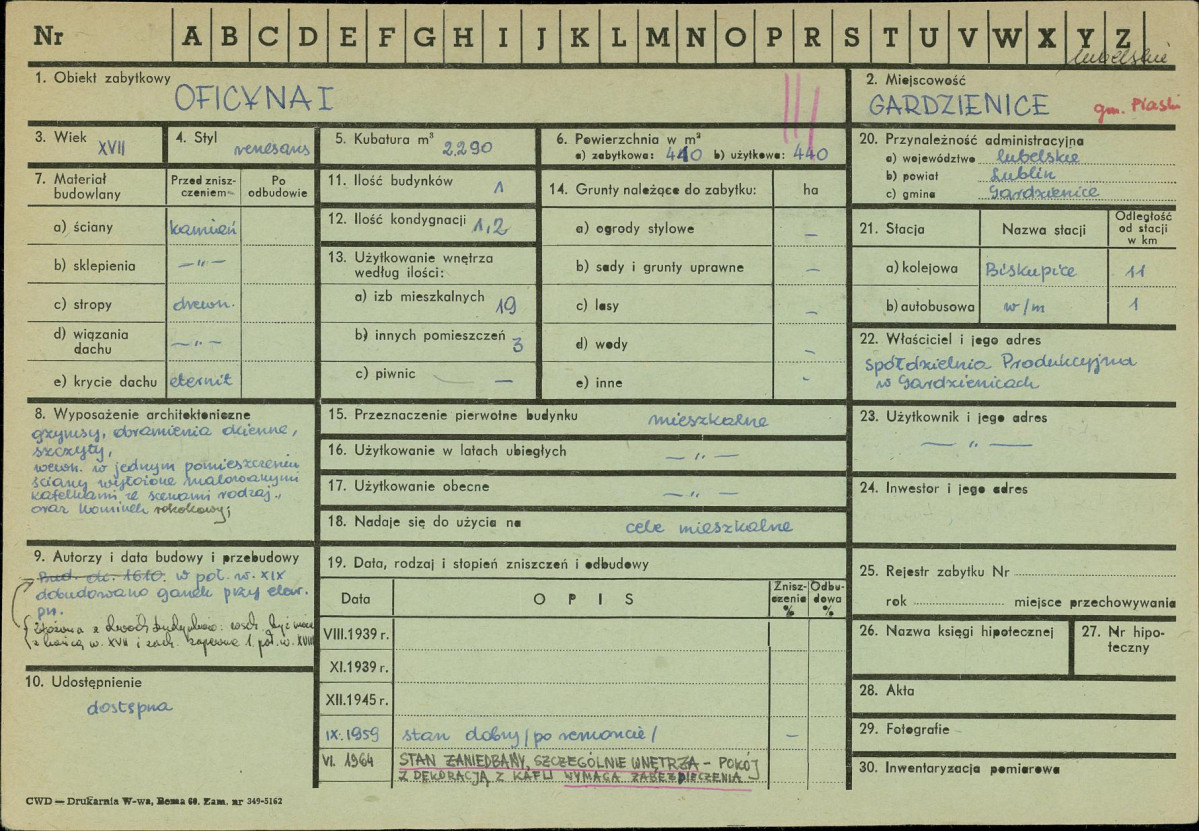 Nr A B C D E F G H I J K L M N O P R S T U V W X Y Z
lubelskie
1. Obiekt zabytkowy
OFICYNA I
2. Miejscowość
GARDZIENICE gm. Piaski
3. Wiek XVII
4. Styl renesans
5. Kubatura m³ 2.290
6. Powierzchnia w m²
a) zabytkowa: 440 b) użytkowa: 440
7. Materiał budowlany
Przed zniszczeniem
Po odbudowie
a) ściany kamień
b) sklepienia —"—
c) stropy drewn.
d) wiązania dachu —"—
e) krycie dachu eternit
8. Wyposażenie architektoniczne
gzymsy, obramienia okienne,
szczyty,
wewn. w jednym pomieszczeniu
ściany wyłożone malowanymi
kafelkami ze scenami rodzaj.,
oraz kominek rokokowy;
9. Autorzy i data budowy i przebudowy
Bud. ok. 1610. w poł. w. XIX
dobudowano ganek przy elew.
pn.
złożona z dwóch budynków: wsch. być może
z końca w. XVII i zach. zapewne 1. poł. w. XVIII
10. Udostępnienie
dostępna
11. Ilość budynków 1
12. Ilość kondygnacji 1,2
13. Użytkowanie wnętrza
według ilości:
a) izb mieszkalnych 19
b) innych pomieszczeń 3
c) piwnic —
14. Grunty należące do zabytku: ha
a) ogrody stylowe —
b) sady i grunty uprawne —
c) lasy —
d) wody —
e) inne -
15. Przeznaczenie pierwotne budynku mieszkalne
16. Użytkowanie w latach ubiegłych —"—
17. Użytkowanie obecne —"—
18. Nadaje się do użycia na cele mieszkalne
19. Data, rodzaj i stopień zniszczeń i odbudowy
Data OPIS Zniszczenia % Odbudowa %
VIII.1939 r.
XI.1939 r.
XII.1945 r.
IX.1959 stan dobry /po remoncie/ —
VI. 1964 STAN ZANIEDBANY, SZCZEGÓLNIE WNĘTRZA – POKÓJ
Z DEKORACJĄ Z KAFLI WYMAGA ZABEZPIECZENIA
20. Przynależność administracyjna
a) województwo lubelskie
b) powiat Lublin
c) gmina Gardzienice
21. Stacja Nazwa stacji Odległość od stacji w km
a) kolejowa Biskupice 11
b) autobusowa w/m 1
22. Właściciel i jego adres
Spółdzielnia Produkcyjna
w Gardzienicach
23. Użytkownik i jego adres
—"—
24. Inwestor i jego adres
25. Rejestr zabytku Nr
rok miejsce przechowywania
26. Nazwa księgi hipotecznej
27. Nr hipoteczny
28. Akta
29. Fotografie
30. Inwentaryzacja pomiarowa
CWD — Drukarnia W-wa, Bema 60. Zam. nr 349-5162